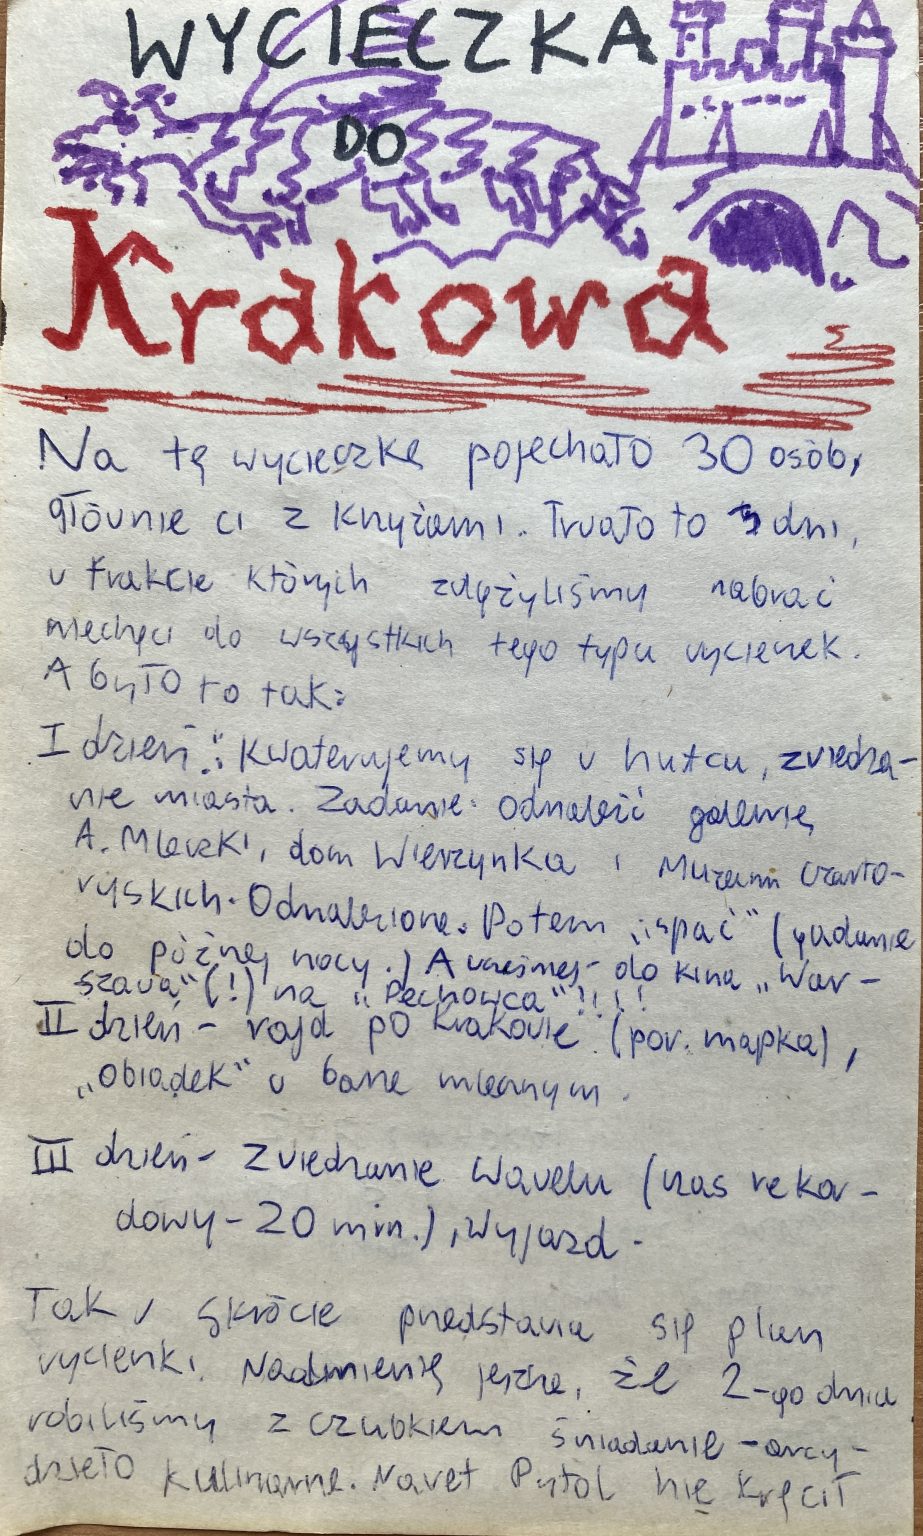 WYCIECZKA
DO
Krakowa
Na tę wycieczkę pojechało 30 osób,
głównie ci z Knyżami. Trwało to 3 dni,
w trakcie których zdążyliśmy nabrać
niechęci do wszystkich tego typu wycieczek.
A było to tak:
I dzień: Kwaterujemy się w hufcu, zwiedza-
nie miasta. Zadanie: Odnaleźć galerię
A. Mleczki, dom Wierzynka i Muzeum Czarto-
ryskich. Odnalezione. Potem "spać" (gadanie
do późnej nocy.) A wcześniej - do kina "War-
szawa" (!) na "Pechowca"!!!!
II dzień - rajd po Krakowie (por. mapka),
"Obiadek" w barze mlecznym.
III dzień - Zwiedzanie Wawelu (czas rekor-
dowy - 20 min.), Wyjazd.
Tak w skrócie przedstawia się plan
wycieczki. Nadmienię jeszcze, że 2-go dnia
robiliśmy z Czubkiem śniadanie - arcy-
dzieło kulinarne. Nawet nie kręcił